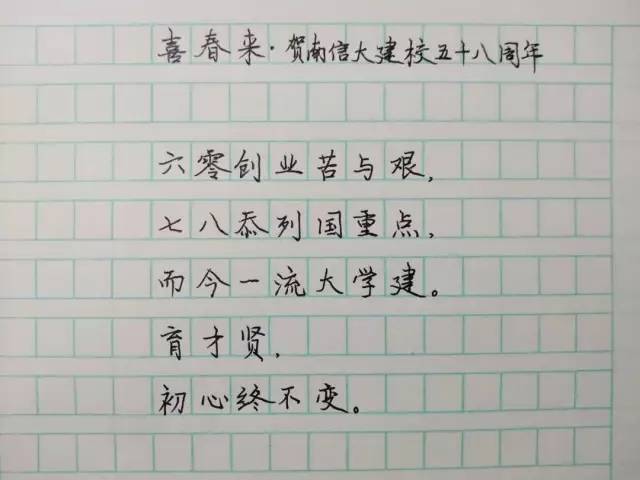 喜春来·贺南信大建校五十八周年
六零创业苦与艰,
七八忝列国重点,
而今一流大学建。
育才贤,
初心终不变。